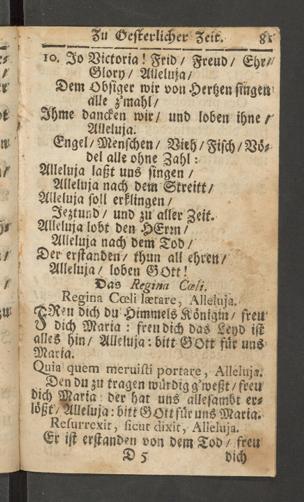 Zu Oesterlicher Zeit. 81
10. Jo Victoria! Frid/ Freud/ Ehr/
Glory/ Alleluja/
Dem Obsiger wir von Hertzen singen
alle z'mahl/
Ihme dancken wir/ und loben ihne/
Alleluja.
Engel/ Menschen/ Vieh/ Fisch/ Vö-
del alle ohne Zahl:
Alleluja laßt uns singen/
Alleluja nach dem Streitt/
Alleluja soll erklingen/
Jeztund/ und zu aller Zeit.
Alleluja lobt den HErrn/
Alleluja nach dem Tod/
Der erstanden/ thun all ehren/
Alleluja/ loben GOtt!
Das Regina Cœli.
Regina Cœli lætare, Alleluja.
FReu dich du Himmels Königin/ freu
dich Maria: freu dich das Leyd ist
alles hin/ Alleluja: bitt GOtt für uns
Maria.
Quia quem meruisti portare, Alleluja.
Den du zu tragen würdig g'weßt/ freu
dich Maria: der hat uns allesambt er-
lößt/ Alleluja: bitt GOtt für uns Maria.
Resurrexit, sicut dixit, Alleluja.
Er ist erstanden von dem Tod/ freu
D 5 dich